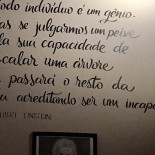 odo indivíduo é um gênio.
as se julgarmos um peixe
la sua capacidade de
scalar uma árvore
passará o resto da
a acreditando ser um incapa